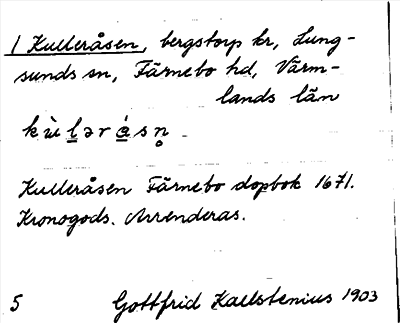 1 Kulleråsen, bergstorp kr, Lung-
sunds sn, Färnebo hd, Värm-
lands län
k ù l ə r á s n̥
Kulleråsen Färnebo dopbok 1671.
Kronogods. Arrenderas.
5 Gottfrid Kallstenius 1903